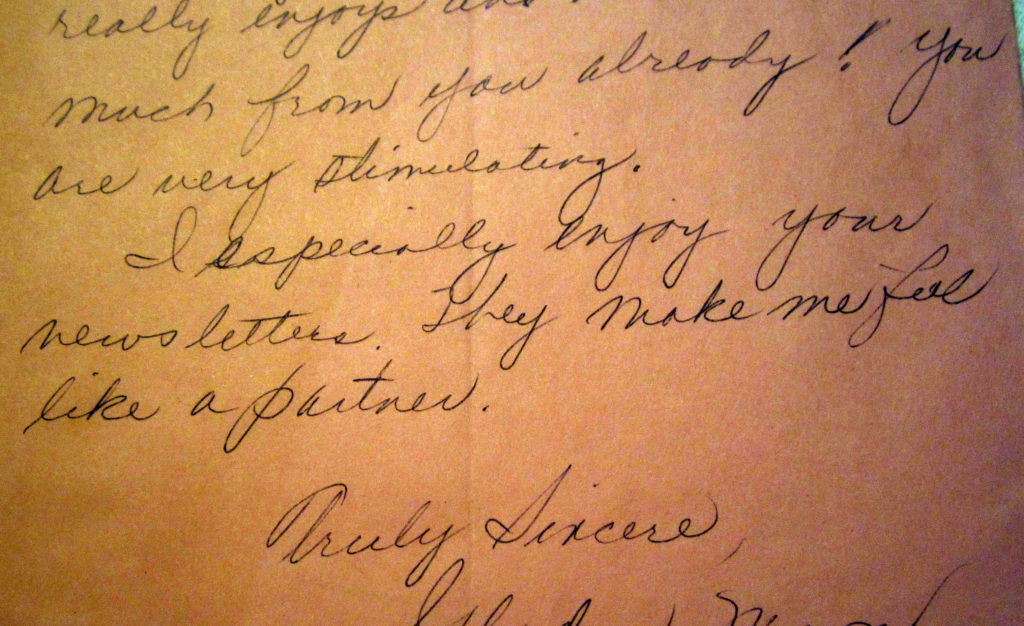 really enjoys
much from you already! You
are very stimulating.
I especially enjoy your
newsletters. They make me feel
like a partner.
Truly Sincere,